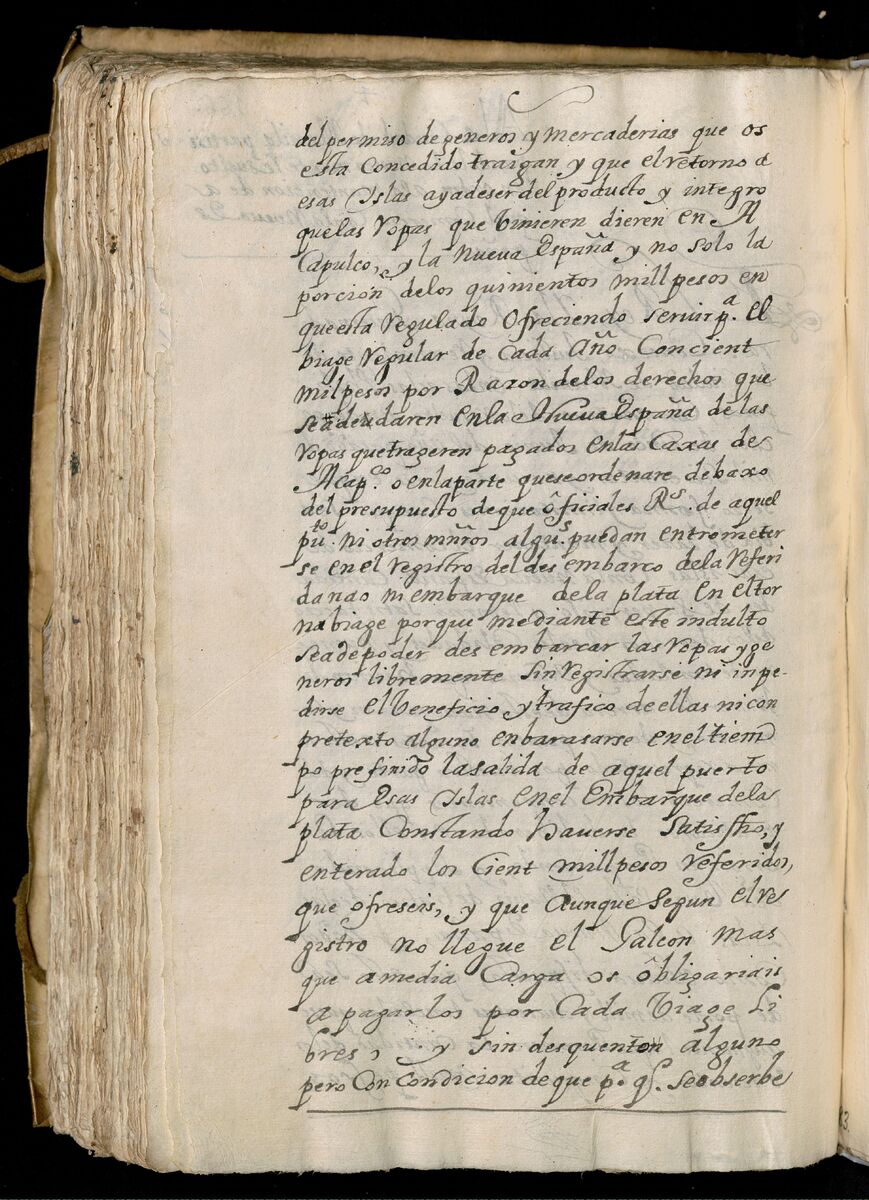 del permiso de generos y mercaderias que os
esta Concedido traigan y que el retorno a
esas Islas aya de ser del producto y integro
que las ropas que binieren dieren en A
Capulco, y la Nueva España y no solo la
porcion de los quinientos mill pesos en
que esta regulado Ofreciendo servir pª. El
biage regular de Cada Año Con cient
mil pesos por Razon de los derechos que
se adeudaren en la Nueva España de las
ropas que trageren pagados en las Caxas de
Acapᶜᵒ. o en la parte que se ordenare debaxo
del presupuesto de que ôficiales Rˢ. de aquel
puᵗᵒ. ni otros mñros alguˢ. puedan entrometer
se en el registro del desembarco de la referi
da nao ni embarque de la plata en el tor
na biage porque mediante este indulto
sea de poder desembarcar las ropas y ge
neros libremente sin registrarse ni inpe-
dirse el beneficio y trafico de ellas ni con
pretexto alguno enbarasarse en el tiem
po prefinido la salida de aquel puerto
para Esas Islas en el Embarque de la
plata Constando haverse satisfho, y
enterado los Cient mill pesos referidos,
que ofreseis, y que Aunque segun el re
gistro no llegue el Galeon mas
que a media Carga os ôbligariais
a pagarlos por Cada biage Li
bres, y sin desquenton alguno
pero Con Condicion de que pª. q̃. se obserbe